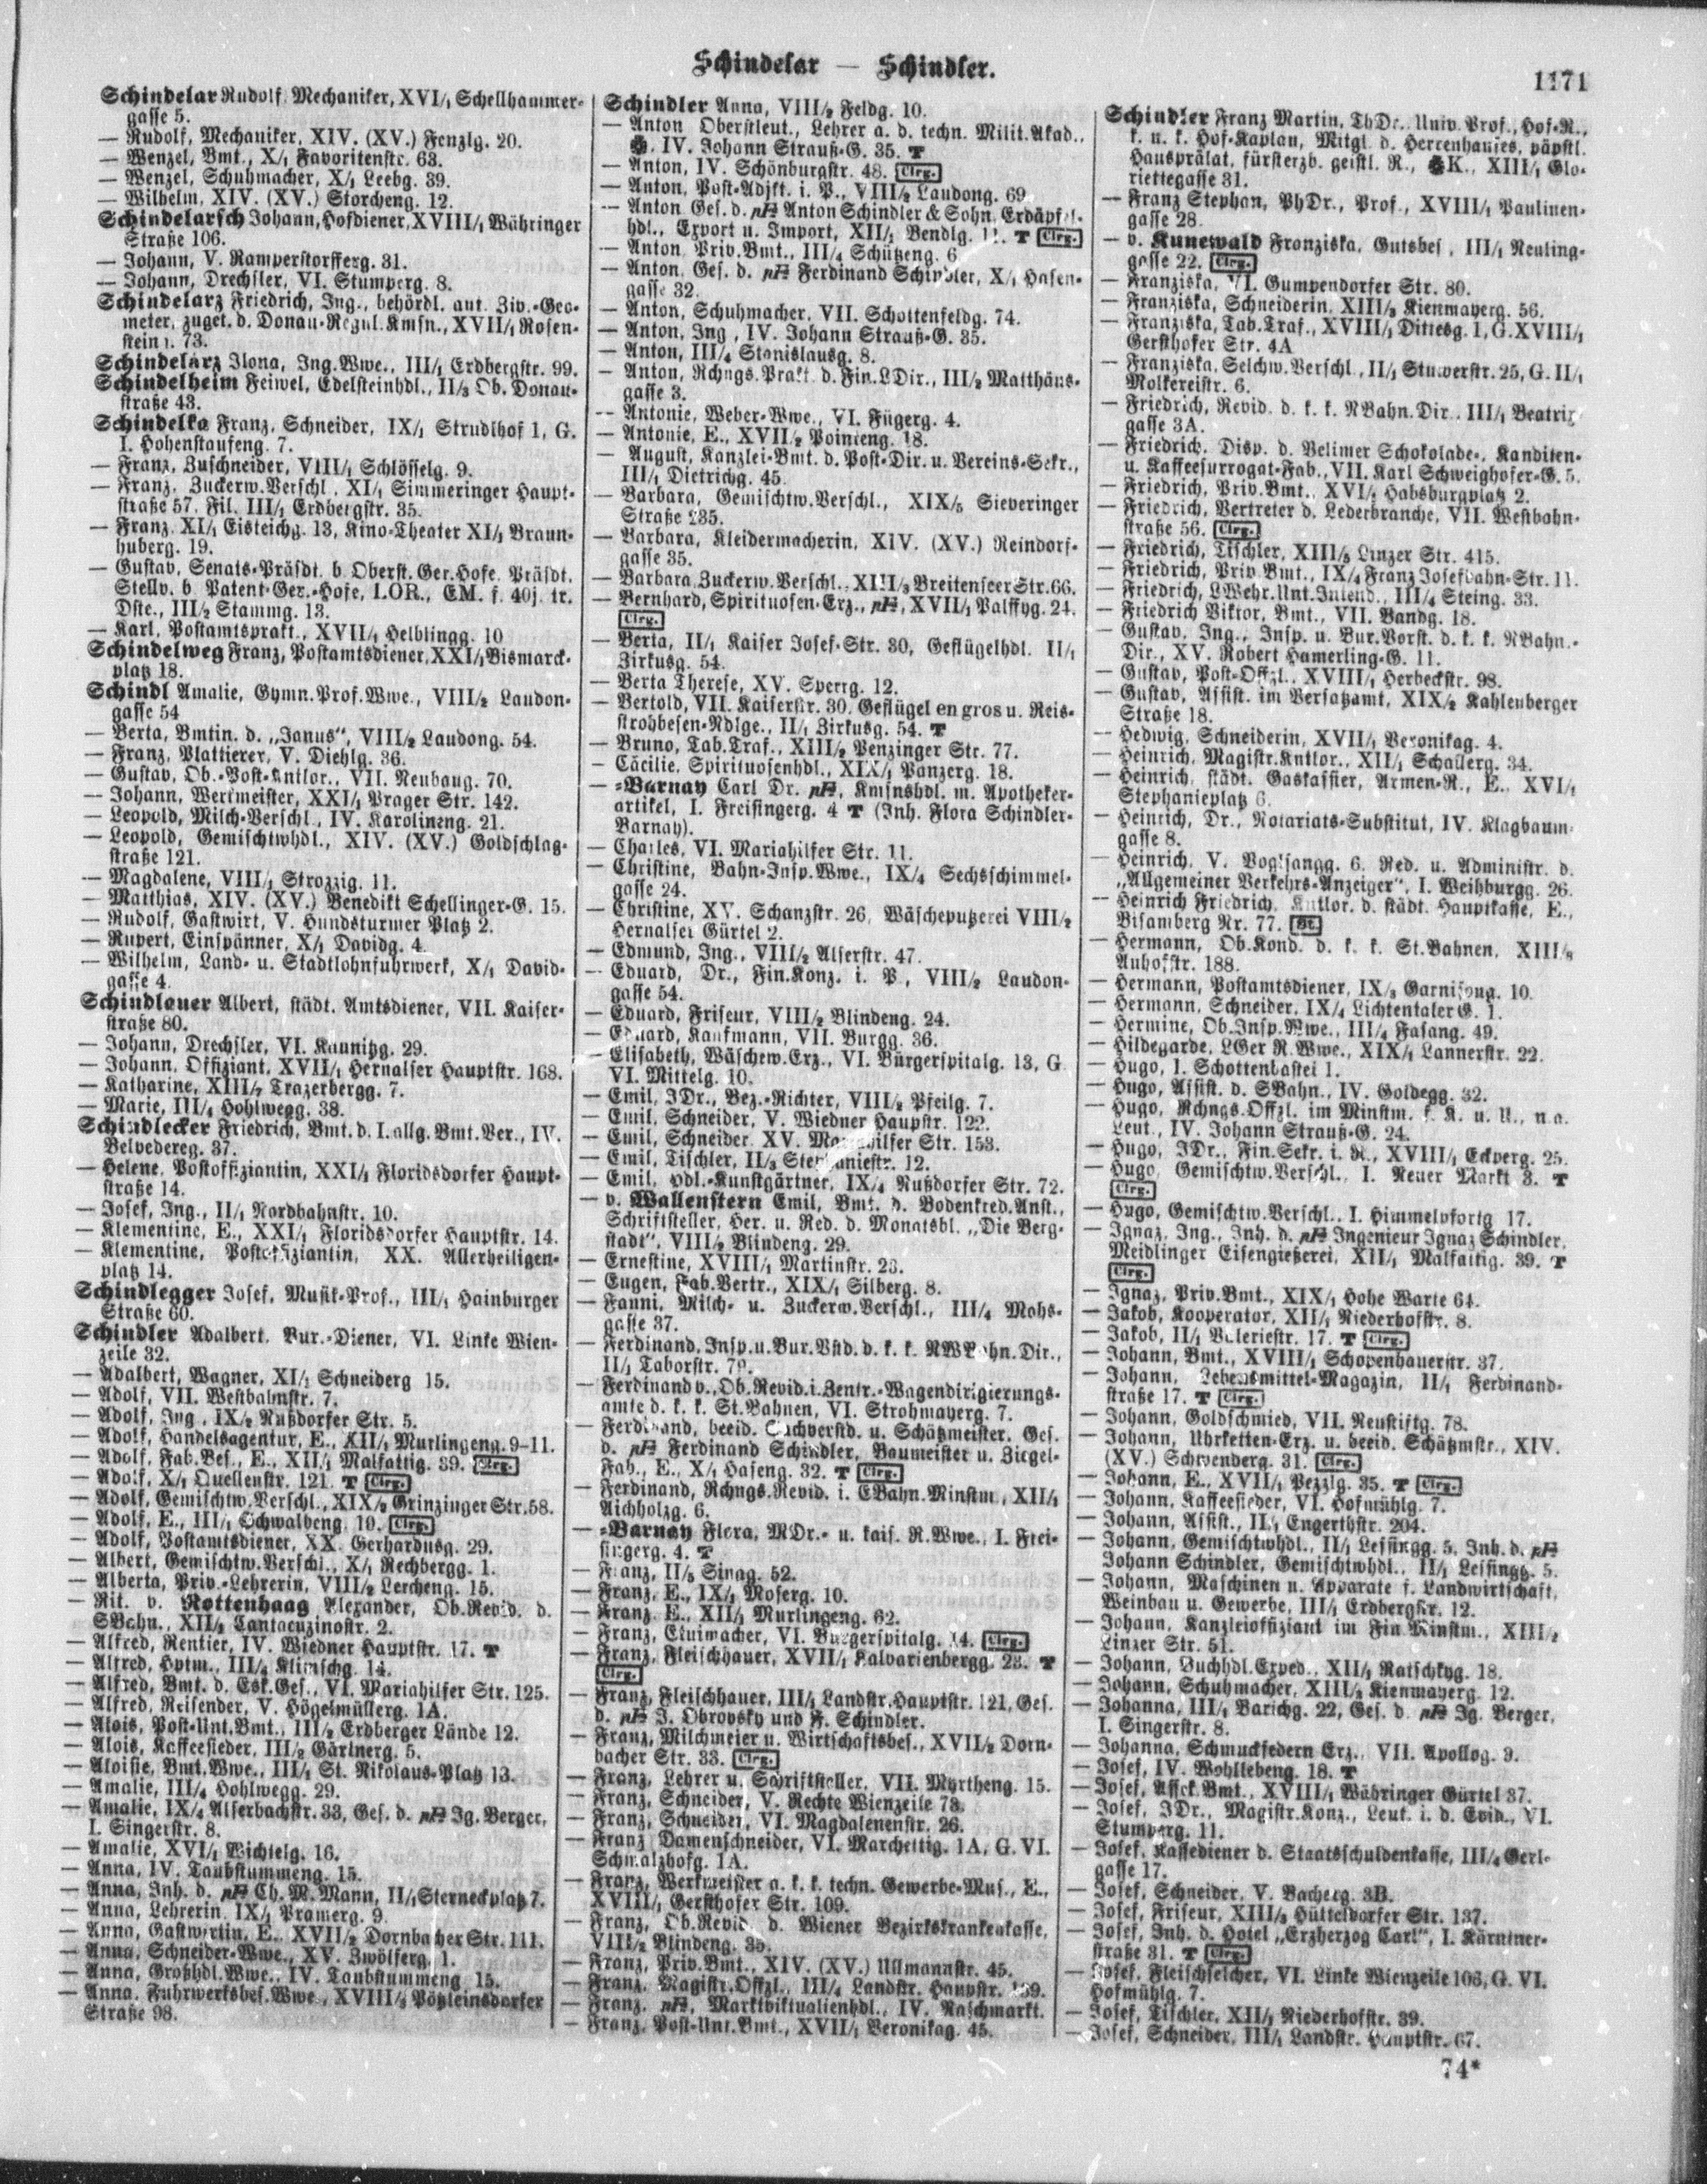 Schindelar — Schindler.
1171
Schindelar Rudolf, Mechaniker, XVI/1 Schellhammer-
gasse 5.
— Rudolf, Mechaniker, XIV. (XV.) Fenzlg. 20.
— Wenzel, Bmt., X/1 Favoritenstr. 63.
— Wenzel, Schuhmacher, X/1 Leebg. 39.
— Wilhelm, XIV. (XV.) Storcheng. 12.
Schindelarsch Johann, Hofdiener, XVIII/1 Währinger
Straße 106.
— Johann, V. Ramperstorfferg. 31.
— Johann, Drechsler, VI. Stumperg. 8.
Schindelarz Friedrich, Ing., behördl. aut. Ziv.-Geo-
meter, zuget. d. Donau-Regul.Kmsn., XVII/1 Rosen-
stein 73.
Schindelarz Ilona, Ing.Wwe., III/1 Erdbergstr. 99.
Schindelheim Feiwel, Edelsteinhdl., II/3 Ob. Donau-
straße 43.
Schindelka Franz, Schneider, IX/1 Strudlhof 1, G.
I. Hohenstaufeng. 7.
— Franz, Zuschneider, VIII/1 Schlösselg. 9.
— Franz, Zuckerw.Verschl., XI/1 Simmeringer Haupt-
straße 57. Fil. III/1 Erdbergstr. 35.
— Franz, XI/1 Eisteichg. 13, Kino-Theater XI/1 Braun-
huberg. 19.
— Gustav, Senats-Präsdt. b. Oberst.Ger.Hofe, Präsdt.
Stellv. b. Patent-Ger.-Hofe, LOR., EM. f. 40j. tr.
Dste., III/2 Stammg. 13.
— Karl, Postamtsprakt., XVII/1 Helblingg. 10
Schindelweg Franz, Postamtsdiener, XXI/1 Bismarck-
platz 18.
Schindl Amalie, Gymn.Prof.Wwe., VIII/2 Laudon-
gasse 54
— Berta, Bmtin. d. „Janus“, VIII/2 Laudong. 54.
— Franz, Plattierer, V. Diehlg. 36.
— Gustav, Ob.-Post-Kntlor., VII. Neubaug. 70.
— Johann, Werkmeister, XXI/1 Prager Str. 142.
— Leopold, Milch-Verschl., IV. Karolineng. 21.
— Leopold, Gemischtwhdl., XIV. (XV.) Goldschlag-
straße 121.
— Magdalene, VIII/1 Strozzig. 11.
— Matthias, XIV. (XV.) Benedikt Schellinger-G. 15.
— Rudolf, Gastwirt, V. Hundsturmer Platz 2.
— Rupert, Einspänner, X/1 Davidg. 4.
— Wilhelm, Land- u. Stadtlohnfuhrwerk, X/1 David-
gasse 4.
Schindlauer Albert, städt. Amtsdiener, VII. Kaiser-
straße 80.
— Johann, Drechsler, VI. Kaunitzg. 29.
— Johann, Offiziant, XVII/1 Hernalser Hauptstr. 168.
— Katharine, XIII/7 Trazerbergg. 7.
— Marie, III/4 Hohlwegg. 38.
Schindlecker Friedrich, Bmt. d. I. allg. Bmt.Ver., IV.
Belvedereg. 37.
— Helene, Postoffiziantin, XXI/1 Floridsdorfer Haupt-
straße 14.
— Josef, Ing., II/1 Nordbahnstr. 10.
— Klementine, E., XXI/1 Floridsdorfer Hauptstr. 14.
— Klementine, Postoffiziantin, XX. Allerheiligen-
platz 14.
Schindlegger Josef, Musik-Prof., III/1 Hainburger
Straße 60.
Schindler Adalbert, Bur.-Diener, VI. Linke Wien-
zeile 32.
— Adalbert, Wagner, XI/1 Schneiderg 15.
— Adolf, VII. Westbahnstr. 7.
— Adolf, Ing., IX/2 Nußdorfer Str. 5.
— Adolf, Handelsagentur, E., XII/1 Murlingeng. 9–11.
— Adolf, Fab.Bes., E., XII/1 Malfattig. 39. Clrg.
— Adolf, X/1 Quellenstr. 121. T Clrg.
— Adolf, Gemischtw.Verschl., XIX/2 Grinzinger Str. 58.
— Adolf, E., III/1 Schwalbeng. 19. Clrg.
— Adolf, Postamtsdiener, XX. Gerhardusg. 29.
— Albert, Gemischtw.Verschl., X/1 Rechbergg. 1.
— Alberta, Priv.-Lehrerin, VIII/2 Lercheng. 15.
— Rit. v. Rottenhaag Alexander, Ob.Revid. d.
SBahn., XII/1 Cantacuzinostr. 2.
— Alfred, Rentier, IV. Wiedner Hauptstr. 17. T
— Alfred, Hptm., III/4 Klimschg. 14.
— Alfred, Bmt. d. Esk.Ges., VI. Mariahilfer Str. 125.
— Alfred, Reisender, V. Högelmüllerg. 1A.
— Alois, Post-Unt.Bmt., III/2 Erdberger Lände 12.
— Alois, Kaffeesieder, III/2 Gärtnerg. 5.
— Aloisie, Bmt.Wwe., III/1 St. Nikolaus-Platz 13.
— Amalie, III/4 Hohlwegg. 29.
— Amalie, IX/4 Alserbachstr. 33, Ges. d. pH Ig. Berger,
I. Singerstr. 8.
— Amalie, XVI/1 Wichtelg. 16.
— Anna, IV. Taubstummeng. 15.
— Anna, Inh. d. pH Ch. M. Mann, II/1 Sterneckplatz 7.
— Anna, Lehrerin, IX/1 Pramerg. 9.
— Anna, Gastwirtin, E., XVII/2 Dornbacher Str. 111.
— Anna, Schneider-Wwe., XV. Zwölferg. 1.
— Anna, Großhdl.Wwe., IV. Taubstummeng. 15.
— Anna, Fuhrwerksbes.Wwe., XVIII/3 Pötzleinsdorfer
Straße 98.
Schindler Anna, VIII/2 Feldg. 10.
— Anton Oberstleut., Lehrer a. d. techn. Milit.Akad.,
IV. Johann Strauß-G. 35. T
— Anton, IV. Schönburgstr. 48. Clrg.
— Anton, Post-Adjkt. i. P., VIII/2 Laudong. 69.
— Anton Ges. d. pH Anton Schindler & Sohn, Erdäpfel-
hdl., Export u. Import, XII/1 Bendlg. 11. T Clrg.
— Anton, Priv.Bmt., III/4 Schützeng. 6
— Anton, Ges. d. pH Ferdinand Schindler, X/1 Hasen-
gasse 32.
— Anton, Schuhmacher, VII. Schottenfeldg. 74.
— Anton, Ing., IV. Johann Strauß-G. 35.
— Anton, III/4 Stanislausg. 8.
— Anton, Rchngs.Prakt. d. Fin.LDir., III/2 Matthäus-
gasse 3.
— Antonie, Weber-Wwe., VI. Fügerg. 4.
— Antonie, E., XVII/2 Pointeng. 18.
— August, Kanzlei-Bmt. d. Post-Dir. u. Vereins-Sekr.,
III/1 Dietrichg. 45.
— Barbara, Gemischtw.Verschl., XIX/5 Sieveringer
Straße 235.
— Barbara, Kleidermacherin, XIV. (XV.) Reindorf-
gasse 35.
— Barbara, Zuckerw.Verschl., XIII/3 Breitenseer Str. 66.
— Bernhard, Spirituosen-Erz., pH, XVII/1 Palffyg. 24.
Clrg.
— Berta, II/1 Kaiser Josef-Str. 30, Geflügelhdl. II/1
Zirkusg. 54.
— Berta Therese, XV. Sperrg. 12.
— Bertold, VII. Kaiserstr. 30. Geflügel en gros u. Reis-
strohbesen-Ndlge., II/1 Zirkusg. 54. T
— Bruno, Tab.Traf., XIII/2 Penzinger Str. 77.
— Cäcilie, Spirituosenhdl., XIX/1 Panzerg. 18.
— =Barnay Carl Dr. pH, Kmsnshdl. m. Apotheker-
artikel, I. Freisingerg. 4 T (Inh. Flora Schindler-
Barnay).
— Charles, VI. Mariahilfer Str. 11.
— Christine, Bahn-Insp.Wwe., IX/4 Sechsschimmel-
gasse 24.
— Christine, XV. Schanzstr. 26, Wäscheputzerei VIII/2
Hernalser Gürtel 2.
— Edmund, Ing., VIII/2 Alserstr. 47.
— Eduard, Dr., Fin.Konz. i. P., VIII/2 Laudon-
gasse 54.
— Eduard, Friseur, VIII/2 Blindeng. 24.
— Eduard, Kaufmann, VII. Burgg. 36.
— Elisabeth, Wäschew.Erz., VI. Bürgerspitalg. 13, G
VI. Mittelg. 10.
— Emil, JDr., Bez.-Richter, VIII/2 Pfeilg. 7.
— Emil, Schneider, V. Wiedner Hauptstr. 122.
— Emil, Schneider, XV. Mariahilfer Str. 153.
— Emil, Tischler, II/3 Stephaniestr. 12.
— Emil, hdl.-Kunstgärtner, IX/4 Nußdorfer Str. 72.
— v. Wallenstern Emil, Bmt. d. Bodenkred.Anst.,
Schriftsteller, Her. u. Red. d. Monatsbl. „Die Berg-
stadt“, VIII/2 Blindeng. 29.
— Ernestine, XVIII/1 Martinstr. 23.
— Eugen, Fab.Vertr., XIX/1 Silberg. 8.
— Fanni, Milch- u. Zuckerw.Verschl., III/4 Mohs-
gasse 37.
— Ferdinand, Insp. u. Bur.Vstd. d. k. k. NWBahn.Dir.,
II/1 Taborstr.
— Ferdinand v., Ob.Revid. i. Zentr.-Wagendirigierungs-
amte d. k. k. St.Bahnen, VI. Strohmayerg. 7.
— Ferdinand, beeid. Sachverstd. u. Schätzmeister. Ges.
d. pH Ferdinand Schindler, Baumeister u. Ziegel-
Fab., E., X/1 Haseng. 32. T Clrg.
— Ferdinand, Rchngs.Revid. i. EBahn.Minstm., XII/1
Aichholzg. 6.
— =Barnay Flora, MDr.- u. kais. R.Wwe., I. Frei-
singerg. 4. T
— Franz, II/5 Sinag. 52.
— Franz, E., IX/1 Moserg. 10.
— Franz, E., XII/1 Murlingeng. 62.
— Franz, Etuimacher, VI. Bürgerspitalg. 14. Clrg.
— Franz, Fleischhauer, XVII/1 Kalvarienbergg. 23. T
Clrg.
— Franz, Fleischhauer, III/1 Landstr.Hauptstr. 121, Ges.
d. pH J. Obrovsky und F. Schindler.
— Franz, Milchmeier u. Wirtschaftsbes., XVII/2 Dorn-
bacher Str. 33. Clrg.
— Franz, Lehrer u. Schriftsteller, VII. Myrtheng. 15.
— Franz, Schneider, V. Rechte Wienzeile 73.
— Franz, Schneider, VI. Magdalenenstr. 26.
— Franz Damenschneider, VI. Marchettig. 1A, G. VI.
Schmalzhofg. 1A.
— Franz, Werkmeister a. k. k. techn. Gewerbe-Mus., E.,
XVIII/1 Gersthofer Str. 109.
— Franz, Ob.Revid. d. Wiener Bezirkskrankenkasse,
VIII/2 Blindeng. 35.
— Franz, Priv.Bmt., XIV. (XV.) Ullmannstr. 45.
— Franz, Magistr.Offzl., III/4 Landstr. Hauptstr.
— Franz, pH, Marktviktualienhdl., IV. Naschmarkt.
— Franz, Post-Unt.Bmt., XVII/1 Veronikag. 45.
Schindler Franz Martin, ThDr., Univ. Prof., Hof-R.,
k. u. k. Hof-Kaplan, Mitgl. d. Herrenhauses, päpstl.
Hausprälat, fürsterzb. geistl. R., K., XIII/1 Glo-
riettegasse 31.
— Franz Stephan, PhDr., Prof., XVIII/1 Paulinen-
gasse 28.
— v. Kunewald Franziska, Gutsbes., III/1 Reuling-
gasse 22. Clrg.
— Franziska, VI. Gumpendorfer Str. 80.
— Franziska, Schneiderin, XIII/3 Kienmayerg. 56.
— Franziska, Tab.Traf., XVIII/1 Dittesg. 1, G. XVIII/1
Gersthofer Str. 4A
— Franziska, Selchw.Verschl., II/1 Stuwerstr. 25, G. II/1
Molkereistr. 6.
— Friedrich, Revid. d. k. k. NBahn.Dir., III/1 Beatrix-
gasse 3A.
— Friedrich, Disp. d. Velimer Schokolade-, Kanditen-
u. Kaffeesurrogat-Fab., VII. Karl Schweighofer-G. 5.
— Friedrich, Priv.Bmt., XVI/1 Habsburgplatz 2.
— Friedrich, Vertreter d. Lederbranche, VII. Westbahn-
straße 56. Clrg.
— Friedrich, Tischler, XIII/5 Linzer Str. 415.
— Friedrich, Priv Bmt., IX/4 Franz Josefbahn-Str. 11.
— Friedrich, LWehr.Unt.Intend., III/4 Steing. 33.
— Friedrich Viktor, Bmt., VII. Bandg. 18.
— Gustav, Ing., Insp. u. Bur.Vorst. d. k. k. NBahn.-
Dir., XV. Robert Hamerling-G. 11.
— Gustav, Post-Offzl., XVIII/1 Herbeckstr. 98.
— Gustav, Assist. im Versatzamt, XIX/2 Kahlenberger
Straße 18.
— Hedwig, Schneiderin, XVII/1 Veronikag. 4.
— Heinrich, Magistr.Kntlor., XII/1 Schallerg. 34.
— Heinrich, städt. Gaskassier, Armen-R., E., XVI/1
Stephanieplatz 6.
— Heinrich, Dr., Notariats-Substitut, IV. Klagbaum-
gasse 8.
— Heinrich, V. Voglsangg. 6. Red. u. Administr. d.
„Allgemeiner Verkehrs-Anzeiger“, I. Weihburgg. 26.
— Heinrich Friedrich, Kntlor. d. städt. Hauptkasse, E.,
Bisamberg Nr. 77. St.
— Hermann, Ob.Kond. d. k. k. St.Bahnen, XIII/8
Auhofstr. 188.
— Hermann, Postamtsdiener, IX/3 Garnisong. 10.
— Hermann, Schneider, IX/4 Lichtentaler G. 1.
— Hermine, Ob.Insp.Wwe., III/4 Fasang. 49.
— Hildegarde, LGer R.Wwe., XIX/1 Lannerstr. 22.
— Hugo, I. Schottenbastei 1.
— Hugo, Assist. d. SBahn., IV. Goldegg. 32.
— Hugo, Rchngs.Offzl. im Minstm. f. K. u. U., n.a.
Leut., IV. Johann Strauß-G. 24.
— Hugo, JDr., Fin.Sekr. i. R., XVIII/1 Eckperg. 25.
— Hugo, Gemischtw.Verschl., I. Neuer Markt 3. T
Clrg.
— Hugo, Gemischtw.Verschl., I. Himmelpfortg 17.
— Ignaz, Ing., Inh. d. pH Ingenieur Ignaz Schindler,
Meidlinger Eisengießerei, XII/1 Malfattig. 39. T
Clrg.
— Ignaz, Priv.Bmt., XIX/1 Hohe Warte 64.
— Jakob, Kooperator, XII/1 Niederhofstr. 8.
— Jakob, II/1 Valeriestr. 17. T Clrg.
— Johann, Bmt., XVIII/1 Schopenhauerstr. 37.
— Johann, Lebensmittel-Magazin, II/1 Ferdinand-
straße 17. T Clrg.
— Johann, Goldschmied, VII. Neustiftg. 78.
— Johann, Uhrketten-Erz. u. beeid. Schätzmstr., XIV.
(XV.) Schwenderg. 31. Clrg.
— Johann, E., XVII/1 Pezzlg. 35. T Clrg.
— Johann, Kaffeesieder, VI. Hofmühlg. 7.
— Johann, Assist., II/1 Engerthstr. 204.
— Johann, Gemischtwhdl., II/1 Lessingg. 5. Inh. d. pH
Johann Schindler, Gemischtwhdl., II/1 Lessingg. 5.
— Johann, Maschinen u. Apparate f. Landwirtschaft,
Weinbau u. Gewerbe, III/1 Erdbergstr. 12.
— Johann, Kanzleioffiziant im Fin Minstm., XIII/2
Linzer Str. 51.
— Johann, Buchhdl.Exped., XII/1 Ratschkyg. 18.
— Johann, Schuhmacher, XIII/2 Kienmayerg. 12.
— Johanna, III/1 Barichg. 22, Ges. d. pH Ig. Berger,
I. Singerstr. 8.
— Johanna, Schmuckfedern Erz., VII. Apollog. 9.
— Josef, IV. Wohllebeng. 18. T
— Josef, Assek.Bmt., XVIII/1 Währinger Gürtel 37.
— Josef, JDr., Magistr.Konz., Leut. i. d. Evid., VI.
Stumperg. 11.
— Josef, Kassediener d. Staatsschuldenkasse, III/4 Gerl-
gasse 17.
— Josef, Schneider, V. Bacherg. 3B.
— Josef, Friseur, XIII/3 Hütteldorfer Str. 137.
— Josef, Inh. d. Hotel „Erzherzog Carl“, I. Kärntner-
straße 31. T Clrg.
— Josef, Fleischselcher, VI. Linke Wienzeile 106, G. VI.
Hofmühlg. 7.
— Josef, Tischler, XII/1 Niederhofstr. 39.
— Josef, Schneider, III/1 Landstr. Hauptstr. 67.
74*